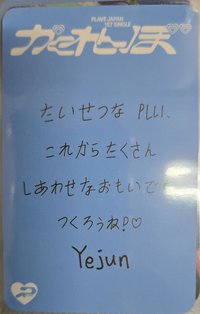 PLAVE JAPAN
1ST SINGLE
かくれんぼ
たいせつな PLLI、
これからたくさん
しあわせなおもいで
つくろうね!♡
Yejun